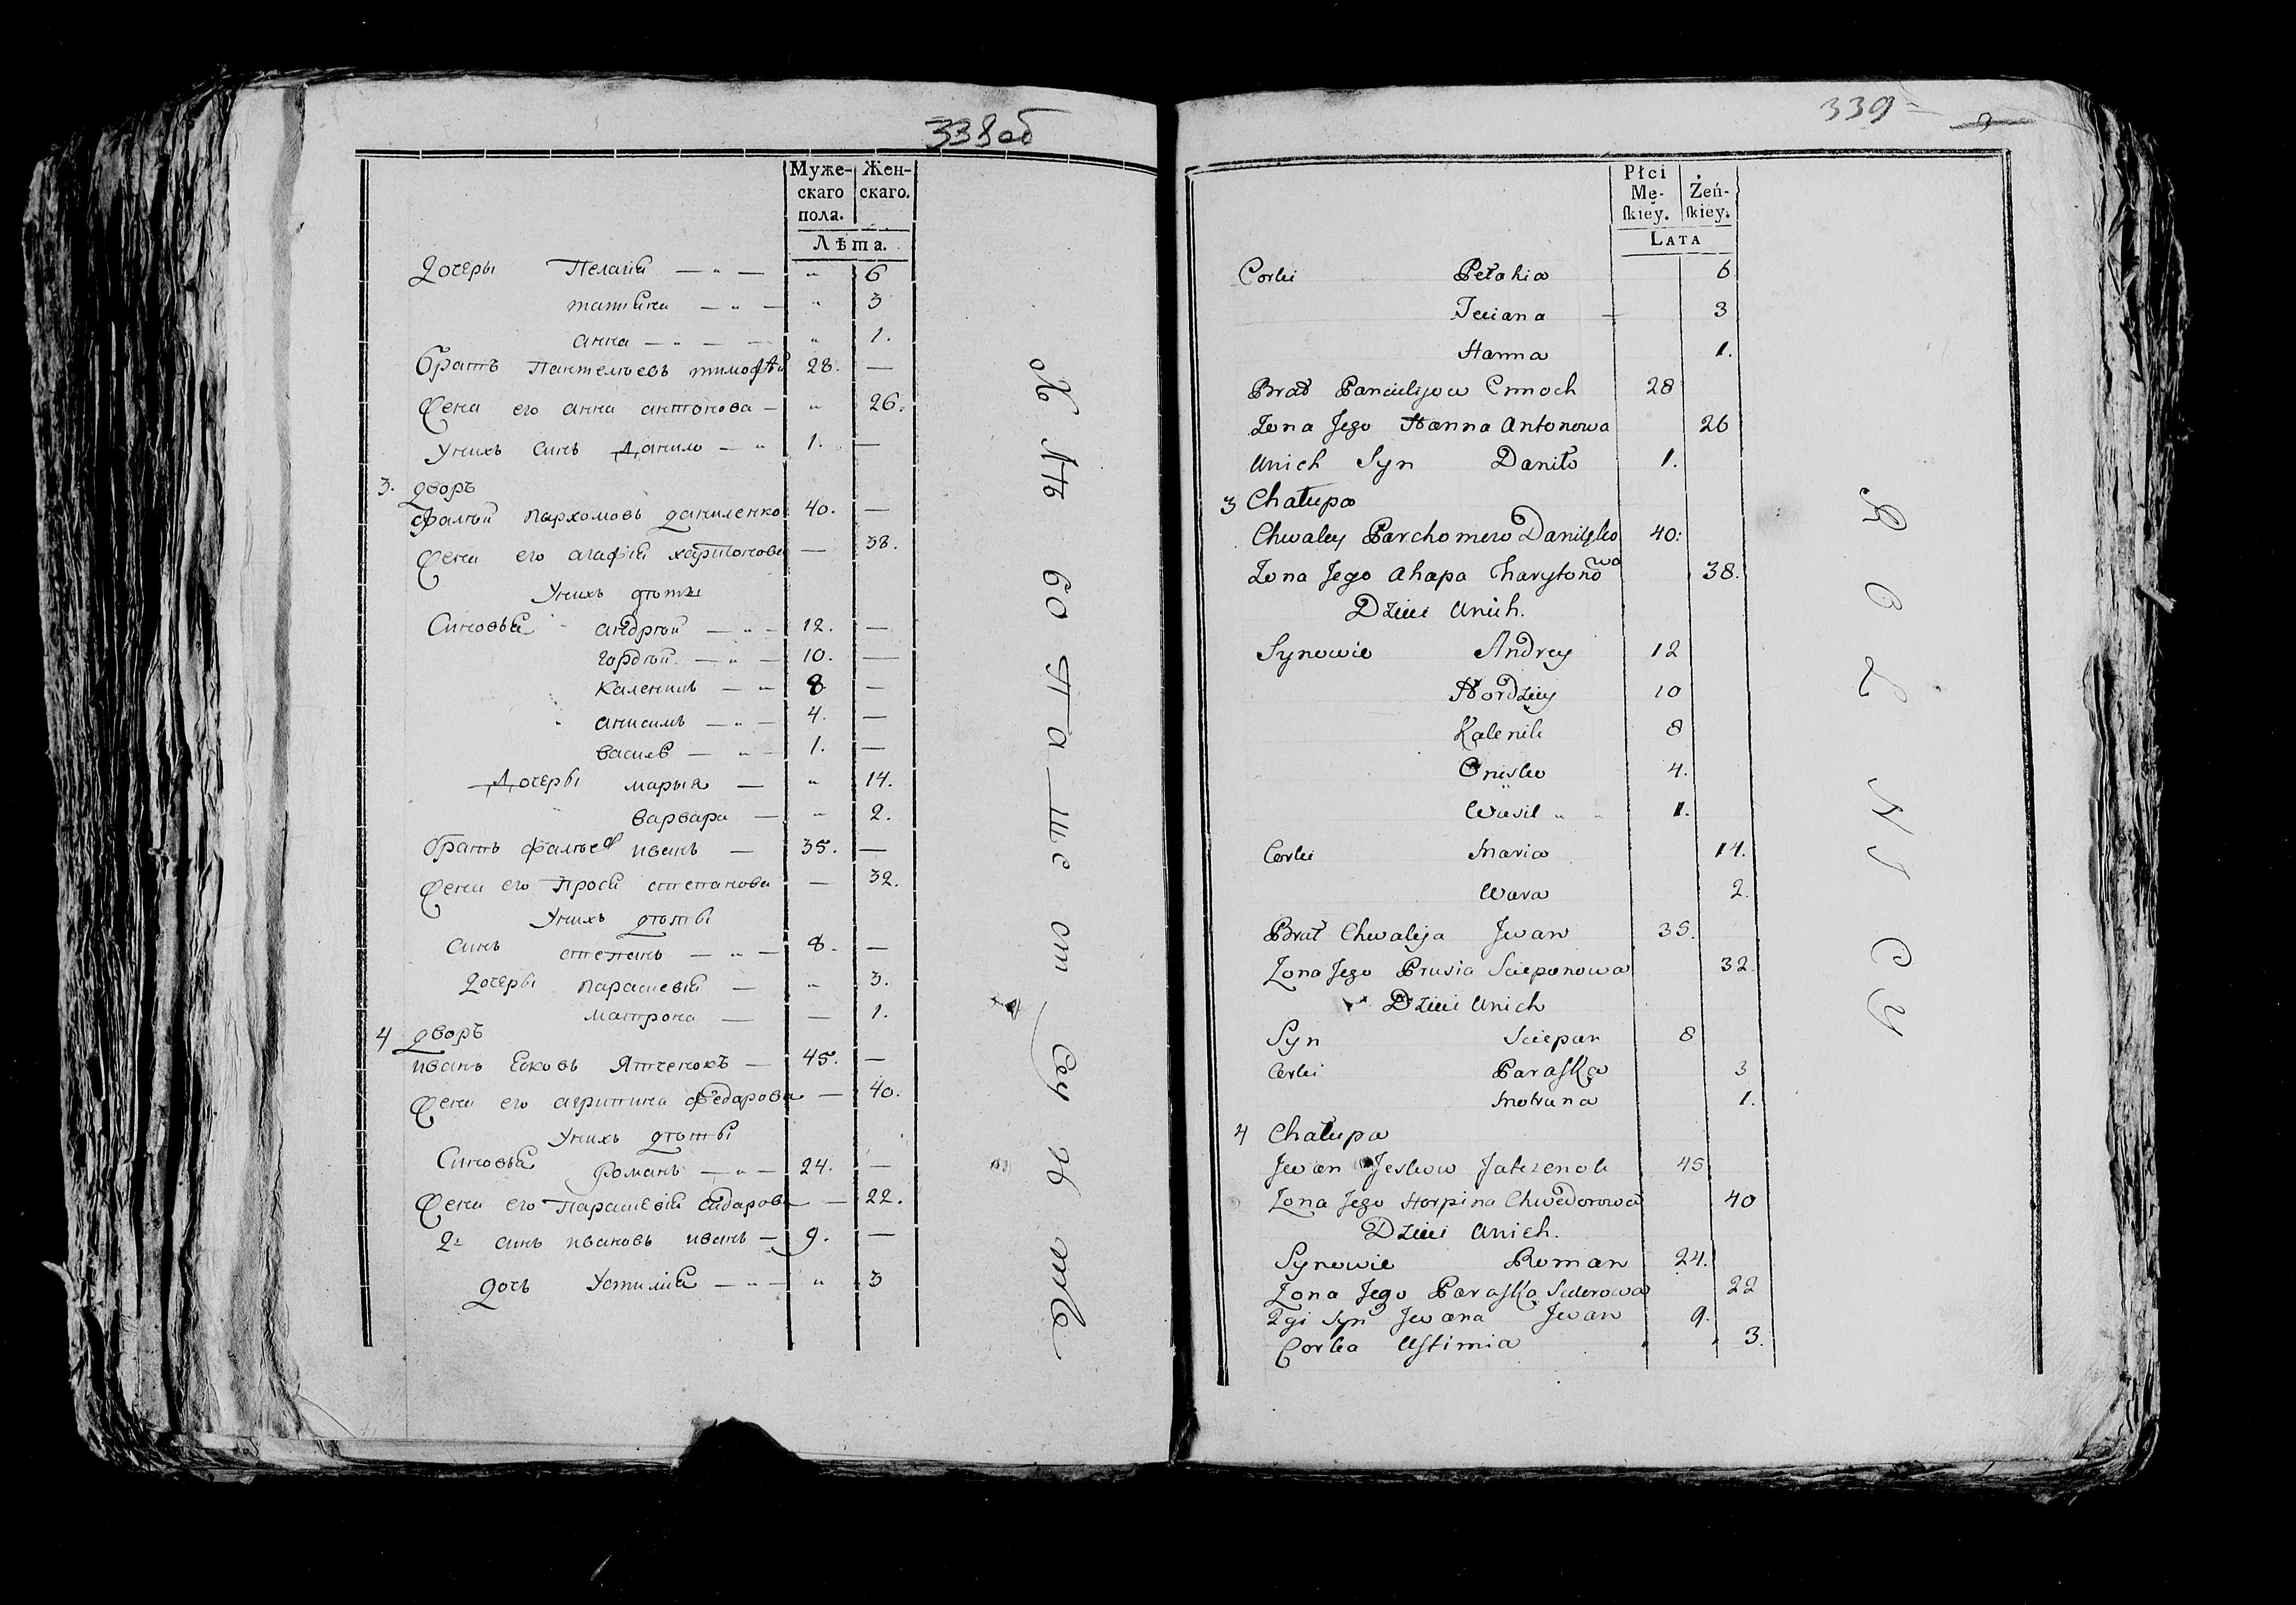 338 об
Муже-
скаго
пола.
Жен-
скаго.
Лѣта.
Дочеры Пелагия — „ — „ 6
татияна — „ — „ 3
анна — „ — „ 1.
братъ Пантелѣевъ тимофѣй 28. —
Жена его анна антонова — „ 26.
Унихъ синъ Данило — „ 1. —
3. дворъ
фалѣй пархомовъ даниленко 40. —
Жена его агафия харитонова — 38.
Унихъ дѣти
Синовья андрѣй — „ — 12. —
гордѣй — „ — 10. —
каленикъ — „ 8 —
анисимъ — „ — 4. —
василь — „ — 1. —
Дочеры марья — „ 14.
варвара — „ 2.
братъ фалѣев иванъ — 35. —
Жена его Прося степанова — 32.
Унихъ дѣты
Синъ степанъ — „ — 8. —
Дочеры парасковия — „ 3.
матрона — — 1.
4 дворъ
иванъ Есковъ Ятченокъ — 45. —
Жена его агрипина федарова — 40.
Унихъ дѣты
Синовья Романъ — „ — 24. —
Жена его Парасковия сидарова — 22.
2й синъ ивановъ иванъ — 9. —
дочь Устимия — „ — „ 3
339
Płci
Mę-
ſkiey.
Żeń-
ſkiey.
LATA
Corki Pełahia 6
Teciana 3
Hanna 1.
Brat Pancielijow Cimoch 28
Żona Jego Hanna Antonowa 26
Unich Syn Daniło 1.
3 Chałupa
Chwaley Parchomow Daniłko 40:
Żona Jego Ahapa Charytonowa 38.
Dzieci Unich.
Synowie Andrey 12
Hordziey 10
Kalenik 8
Onisko 4.
Wasil „ „ 1.
Corki Maria 14.
Wara 2.
Brat Chwaleja Jwan 35.
Żona Jego Prusia Sciepanowa 32
Dzieci Unich
Syn Sciepan 8
Corki Paraſka 3
Motruna 1.
4 Chałupa
Jwan Jeskow Jatczenok 45
Żona Jego Horpina Chwedorowa 40
Dzieci Unich.
Synowie Roman 24.
Żona Jego Paraſka Siderowa 22
2gi Syn Jwana Jwan 9.
Corka Uſtimia 3.
R O L N I C Y